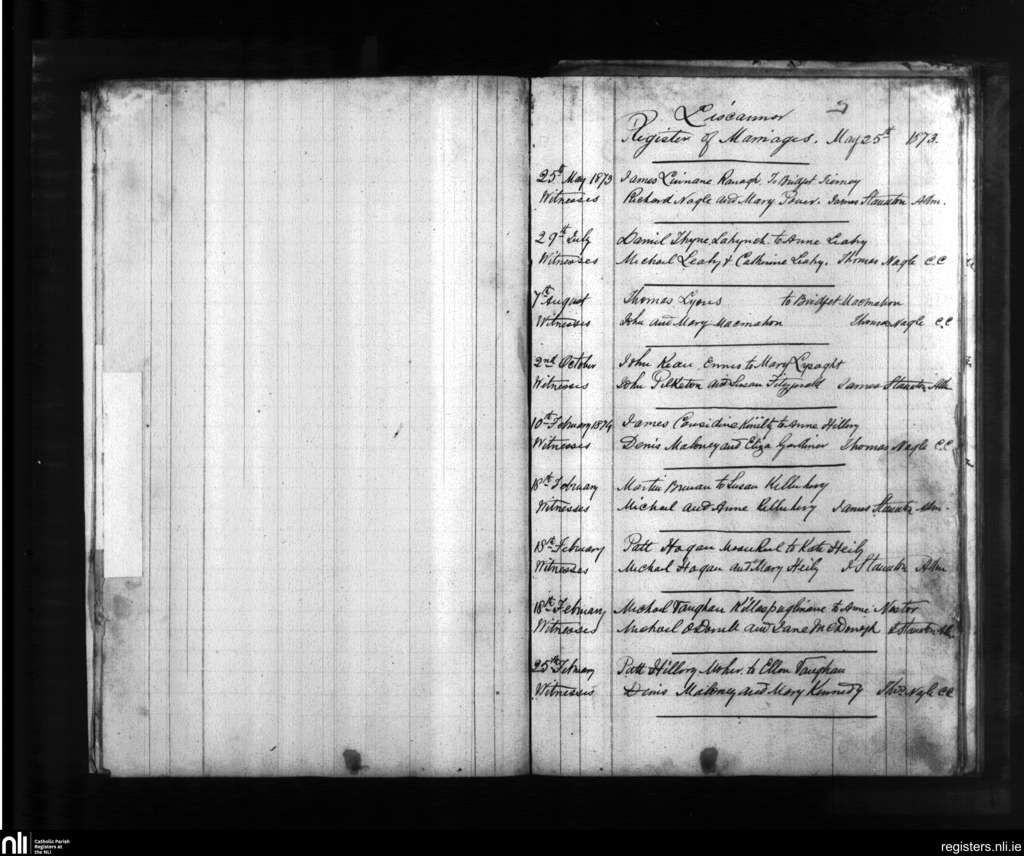 Liscannor
Register of Marriages. May 25th 1873.
25th May 1873 James Linnane Kanagh To Bridget Tierney
Witnesses Richard Nagle and Mary Power. James Staunton Adm.
29th July Daniel Thyne Lahynch to Anne Leahy
Witnesses Michael Leahy & Catherine Leahy. Thomas Nagle C.C
7th August Thomas Lyons to Bridget Macmahon
Witnesses John and Mary Macmahon Thomas Nagle C.C
2nd October John Kean Ennis to Mary Lysaght
Witnesses John Pilkston and Susan Fitzgerald James Staunton Adm
10th February 1874 James Considine to Anne Hillery
Witnesses Denis Maloney and Eliza Gardiner Thomas Nagle C.C.
18th February Martin to Susan
Witnesses Michael and Anne James Staunton Adm.
18th February Patt Hogan to Kate Heily
Witnesses Michael Hogan and Mary Heily J Staunton Adm
18th February Michael Vaughan to Anne Nestor
Witnesses Michael and Jane McDonagh J Staunton
25th February Patt Hillery Moher to Ellen Vaughan
Witnesses Denis Maloney and Mary Kennedy Thos Nagle CC
nli
Catholic Parish
Registers at
the NLI
registers.nli.ie